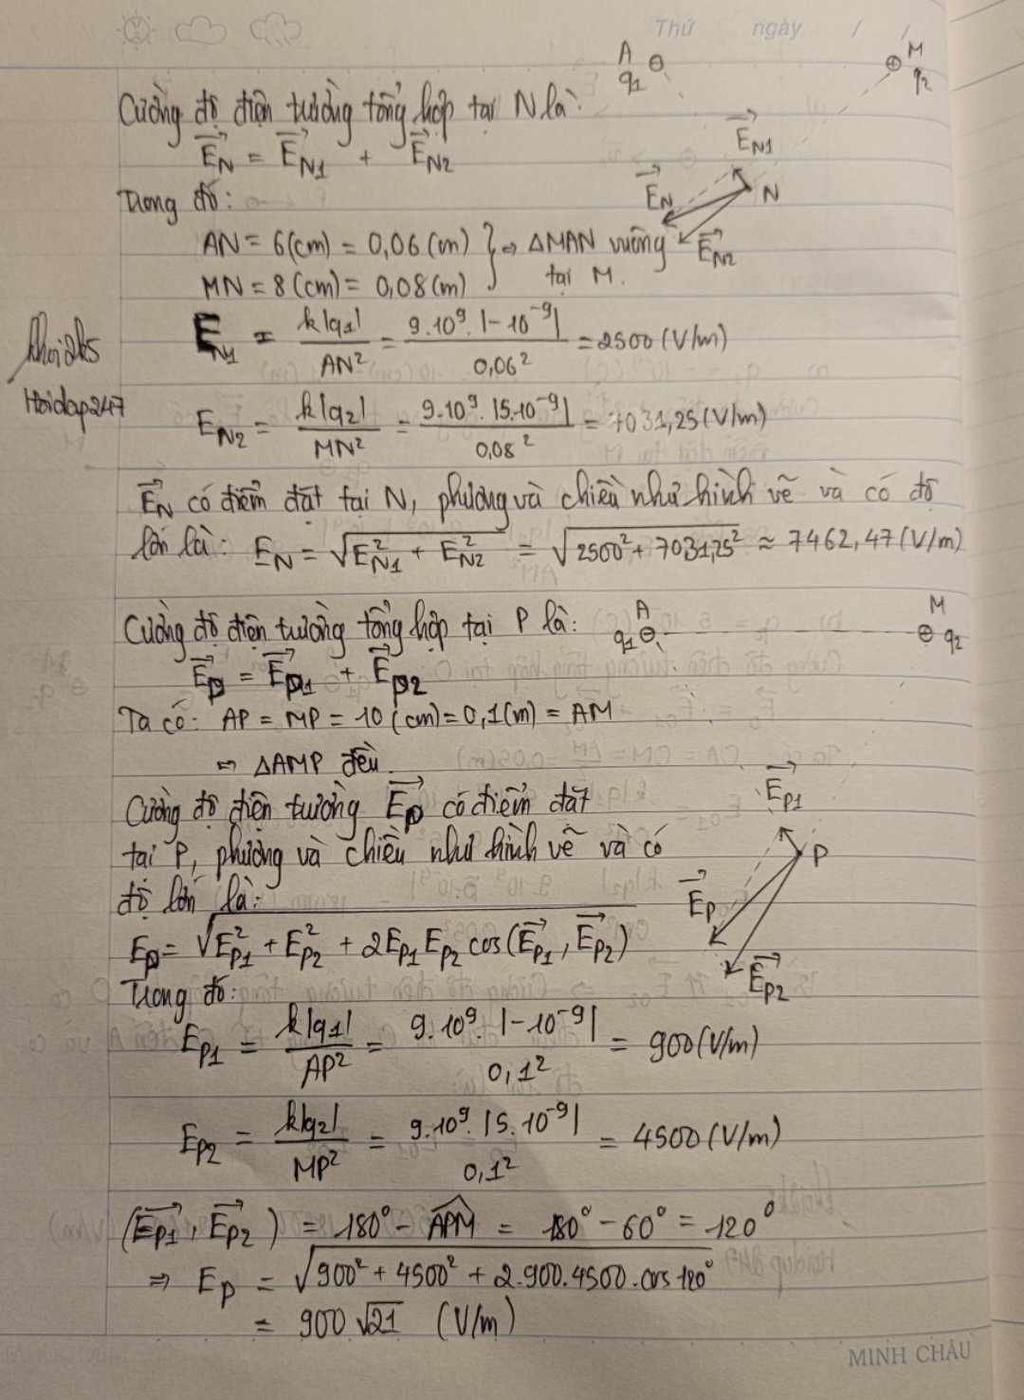 Thứ ngày / /
A
q₁ ⊖
⊕ M
q₂
Cường độ điện trường tổng hợp tại N là:
E⃗_N = E⃗_N1 + E⃗_N2
E⃗_N1
Trong đó:
E⃗_N
N
AN = 6(cm) = 0,06(m) } ⇒ ΔMAN vuông
E⃗_N2
MN = 8(cm) = 0,08(m) tại M.
E_N1 = k|q₁|/AN² = 9.10⁹.|-10⁻⁹|/0,06² = 2500(V/m)
Hoidap247
E_N2 = k|q₂|/MN² = 9.10⁹.|5.10⁻⁹|/0,08² = 7031,25(V/m)
E⃗_N có điểm đặt tại N, phương và chiều như hình vẽ và có độ
lớn là: E_N = √(E²_N1 + E²_N2) = √(2500² + 7031,25²) ≈ 7462,47(V/m)
Cường độ điện trường tổng hợp tại P là:
A
q₁ ⊖
M
⊕ q₂
E⃗_P = E⃗_P1 + E⃗_P2
Ta có: AP = MP = 10(cm) = 0,1(m) = AM
⇒ ΔAMP đều.
Cường độ điện trường E⃗_P có điểm đặt
E⃗_P1
tại P, phương và chiều như hình vẽ và có
P
độ lớn là:
E⃗_P
E_P = √(E²_P1 + E²_P2 + 2E_P1 E_P2 cos(E⃗_P1, E⃗_P2))
E⃗_P2
Trong đó:
E_P1 = k|q₁|/AP² = 9.10⁹.|-10⁻⁹|/0,1² = 900(V/m)
E_P2 = k|q₂|/MP² = 9.10⁹.|5.10⁻⁹|/0,1² = 4500(V/m)
(E⃗_P1, E⃗_P2) = 180° - ÂPM = 180° - 60° = 120°
⇒ E_P = √(900² + 4500² + 2.900.4500.cos120°)
= 900√21 (V/m)
MINH CHÂU